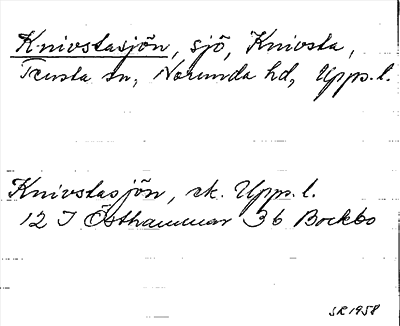 Knivstasjön, sjö, Knivsta,
Tensta sn, Norunda hd, Upps. l.
Knivstasjön, ek. Upps. l.
12 I Östhammar 3b Bockbo
SR 1958